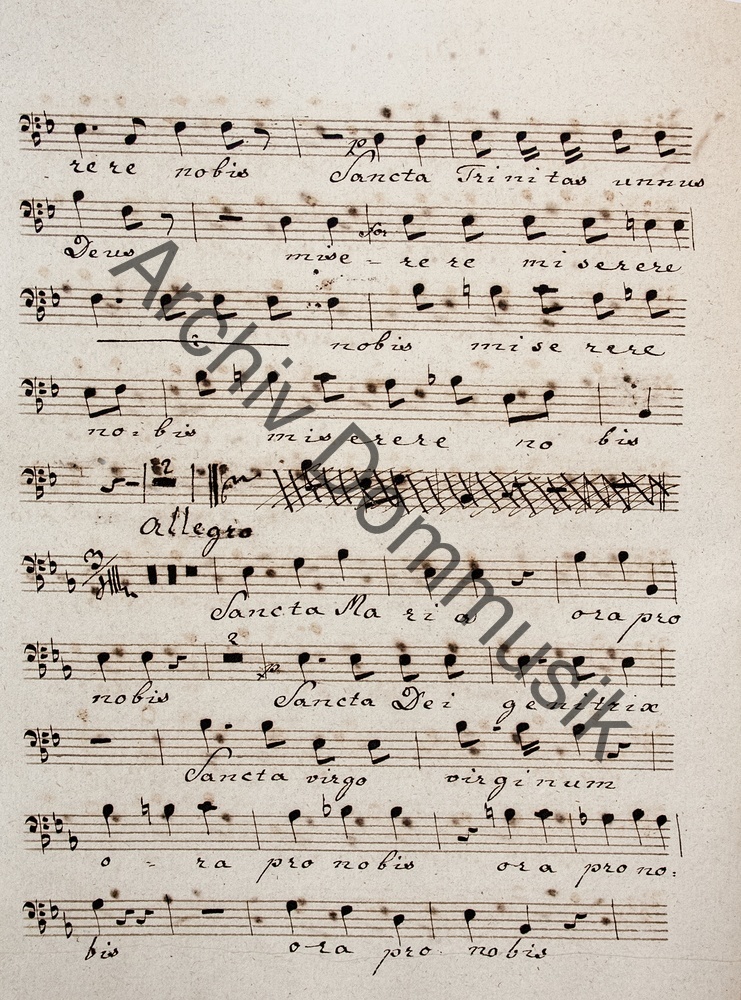 rere nobis Sancta Trinitas unnus
p
Deus mise - rere miserere
for
nobis miserere
no: bis miserere no bis
2
Allegro
3/4
Sancta Maria ora pro
2
p
nobis Sancta Dei genitrix
Sancta virgo virginum
o - ra pro nobis ora pro no:
bis ora pro nobis
Archiv Dommusik